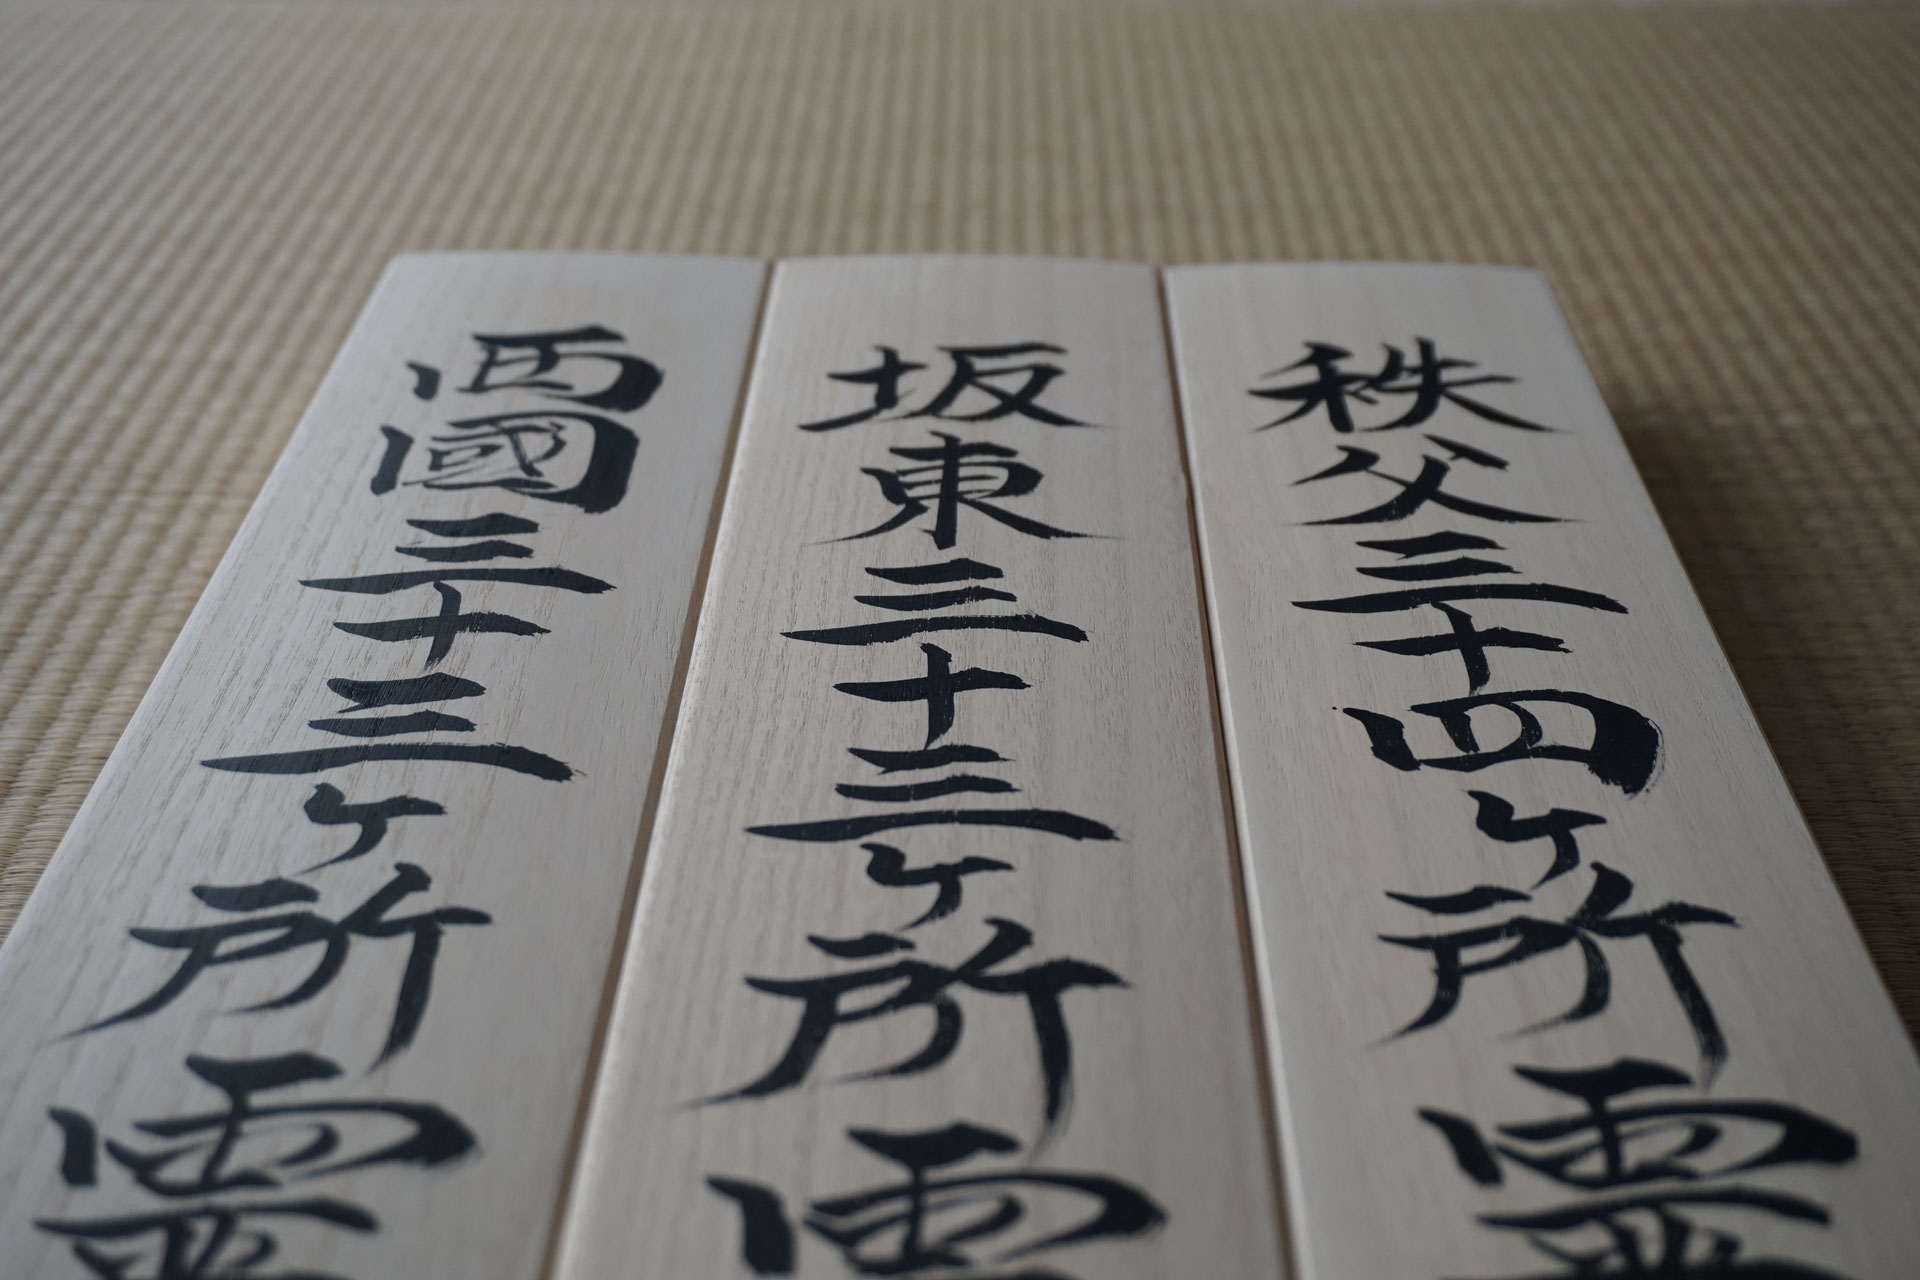 秩父三十四ヶ所霊
坂東三十三ヶ所霊
西國三十三ヶ所霊